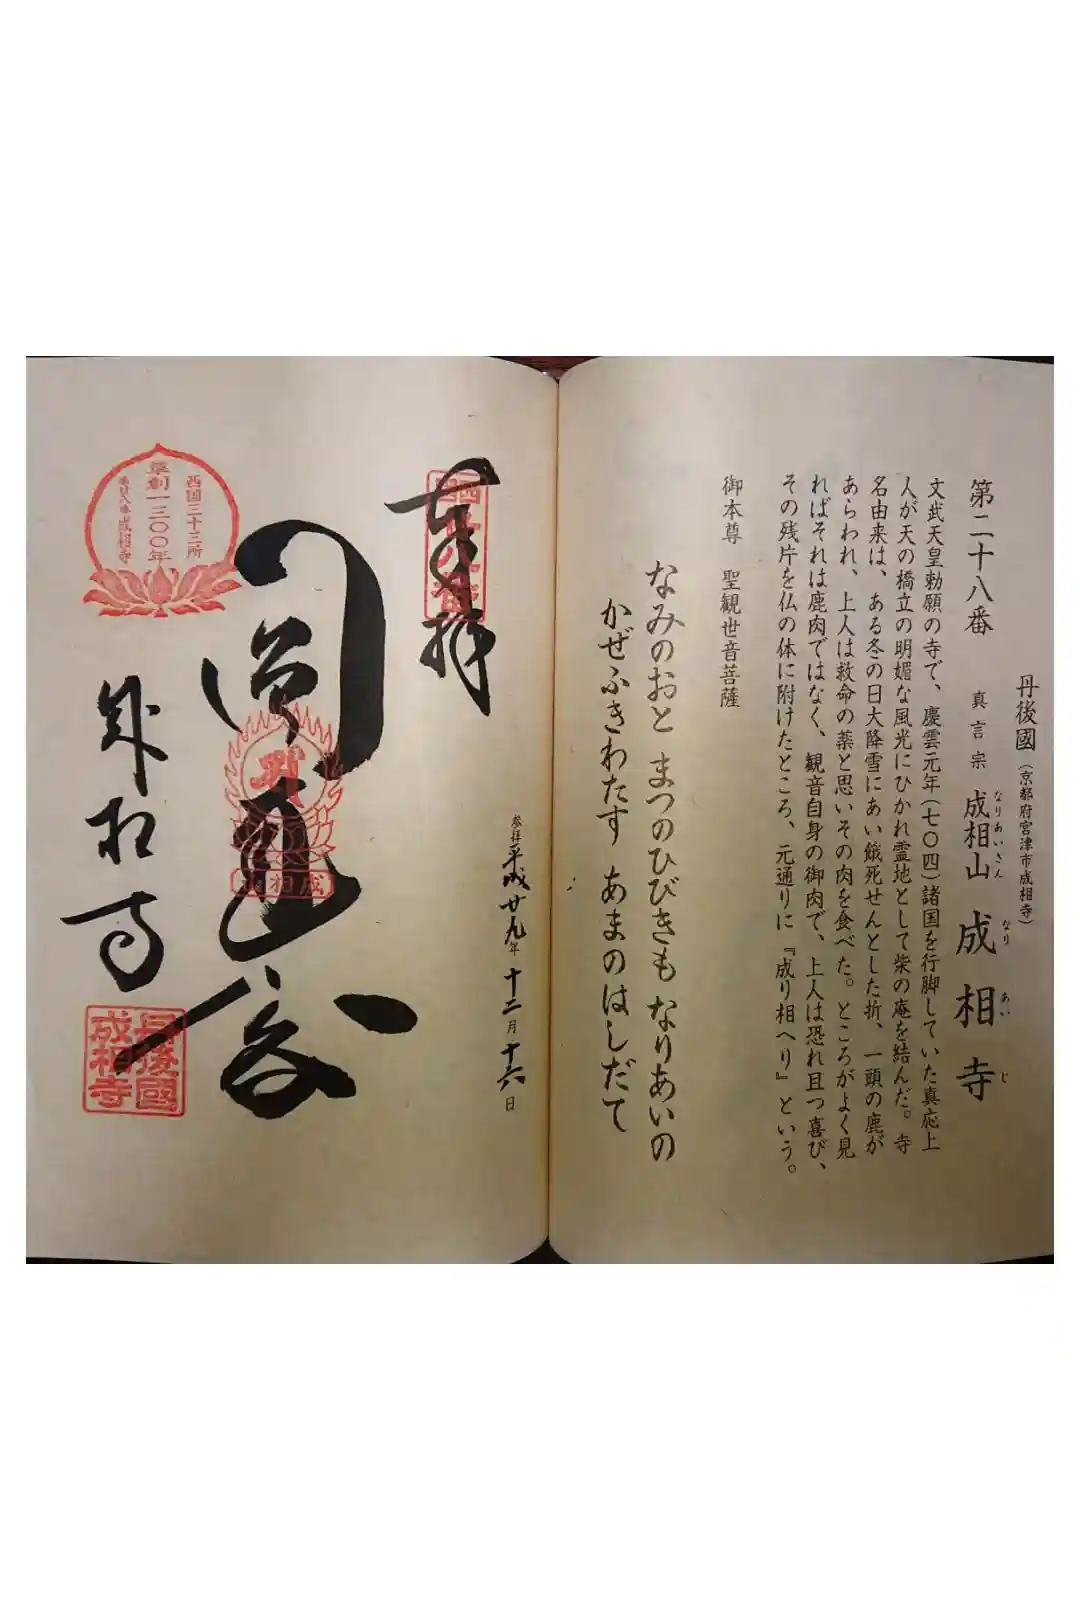 丹後國（京都府宮津市成相寺）
第二十八番 真言宗 成相山 成相寺
なりあいさん なり あい じ
文武天皇勅願の寺で、慶雲元年(七〇四)諸国を行脚していた真応上
人が天の橋立の明媚な風光にひかれ霊地として柴の庵を結んだ。寺
名由来は、ある冬の日大降雪にあい餓死せんとした折、一頭の鹿が
あらわれ、上人は救命の薬と思いその肉を食べた。ところがよく見
ればそれは鹿肉ではなく、観音自身の御肉で、上人は恐れ且つ喜び、
その残片を仏の体に附けたところ、元通りに『成り相へり』という。
御本尊 聖観世音菩薩
なみのおと まつのひびきも なりあいの
かぜふきわたす あまのはしだて
参拝 平成廿九年 十二月 十六日
奉拝
成相寺
西国三十三所
草創一三〇〇年
第廿八番 成相寺
成相山
丹後國
成相寺